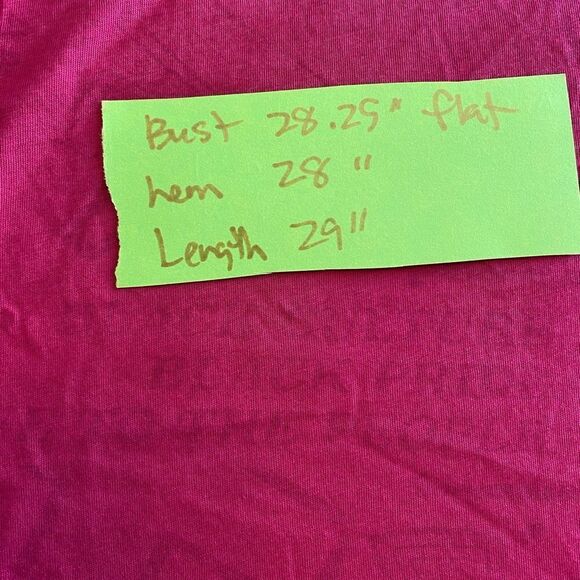 Bust 28.25" flat
hem 28"
Length 29"